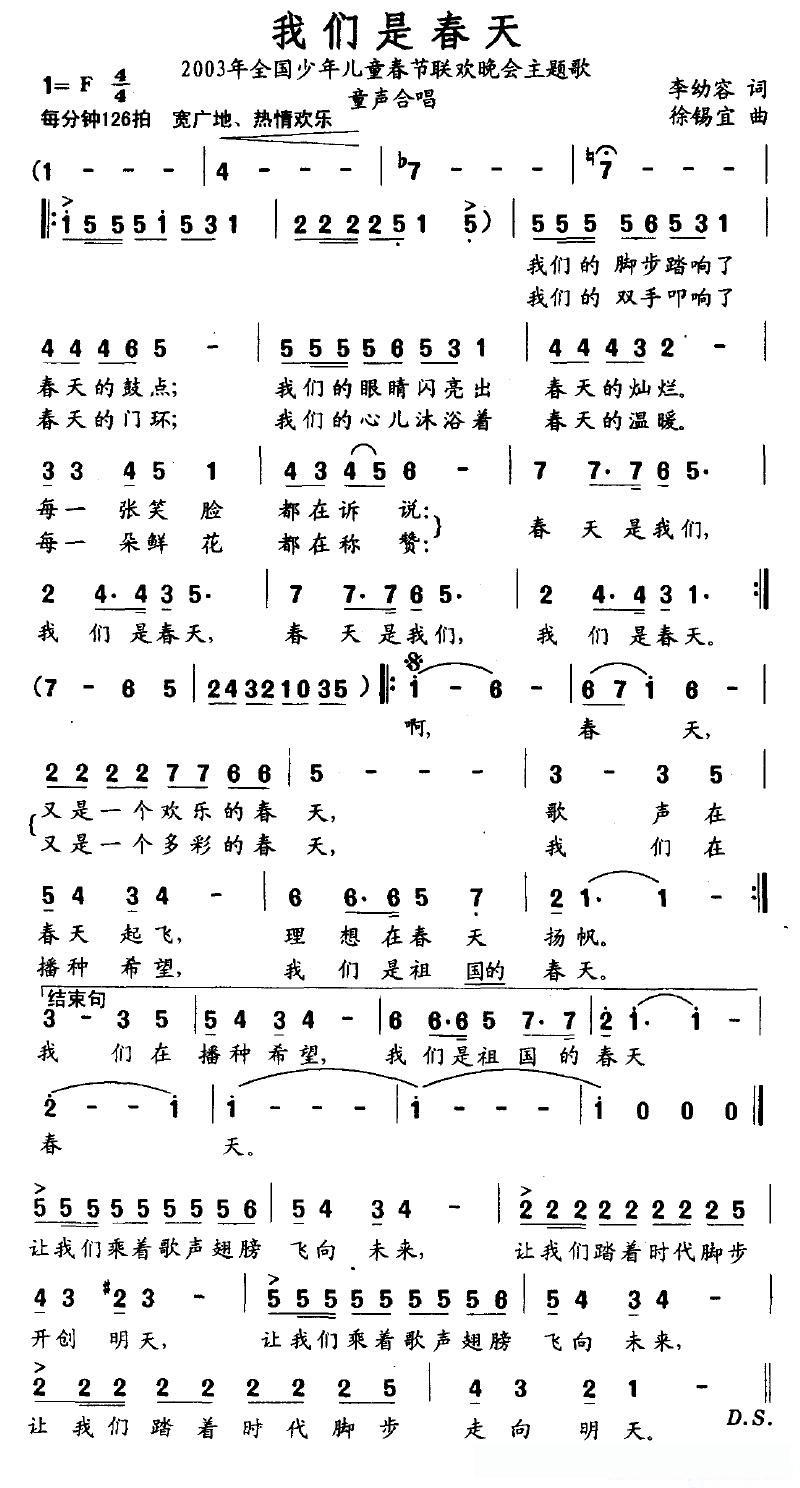 我们是春天
2003年全国少年儿童春节联欢晚会主题歌
1= F 4/4
童声合唱
李幼容 词
每分钟126拍 宽广地、热情欢乐
徐锡宜 曲
(1 - - - | 4 - - - | ♭7 - - - | ♮7 - - - |
‖: i 5 5 5 5 i 5 3 1 | 2 2 2 2 2 5 1 5 ) | 5 5 5 5 6 5 3 1 |
我们的 脚步踏响了
我们的 双手叩响了
4 4 4 6 5 - | 5 5 5 5 6 5 3 1 | 4 4 4 3 2 - |
春天的鼓点; 我们的眼睛闪亮出 春天的灿烂。
春天的门环; 我们的心儿沐浴着 春天的温暖。
3 3 4 5 1 | 4 3 4 5 6 - | 7 7· 7 6 5· |
每一 张笑 脸 都在诉 说: 春 天 是我们,
每一 朵鲜 花 都在称 赞:
2 4· 4 3 5· | 7 7· 7 6 5· | 2 4· 4 3 1· :‖
我 们 是春天, 春 天 是我们, 我 们 是春天。
(7 - 6 5 | 2 4 3 2 1 0 3 5 ) ‖: i - 6 - | 6 7 i 6 - |
啊, 春 天,
2 2 2 2 7 7 6 6 | 5 - - - | 3 - 3 5 |
又是一个欢乐的春 天, 歌 声在
又是一个多彩的春 天, 我 们在
5 4 3 4 - | 6 6· 6 5 7 | 2 1· 1 - :‖
春天 起飞, 理 想在春 天 扬帆。
播种 希望, 我 们是祖 国的 春天。
结束句
3 - 3 5 | 5 4 3 4 - | 6 6· 6 5 7· 7 | 2 i· i - |
我 们在 播种希望, 我们是祖 国 的春天
2 - - i | i - - - | i - - - | i 0 0 0 |
春 天。
5 5 5 5 5 5 5 5 6 | 5 4 3 4 - | 2 2 2 2 2 2 2 2 5 |
让我们乘着歌声翅膀 飞向 未来, 让我们踏着时代脚步
4 3 #2 3 - | 5 5 5 5 5 5 5 5 6 | 5 4 3 4 - |
开创 明天, 让我们乘着歌声翅膀 飞向 未来,
2 2 2 2 2 2 2 2 5 | 4 3 2 1 - ‖
让 我们 踏着时代脚步 走向 明天。 D.S.